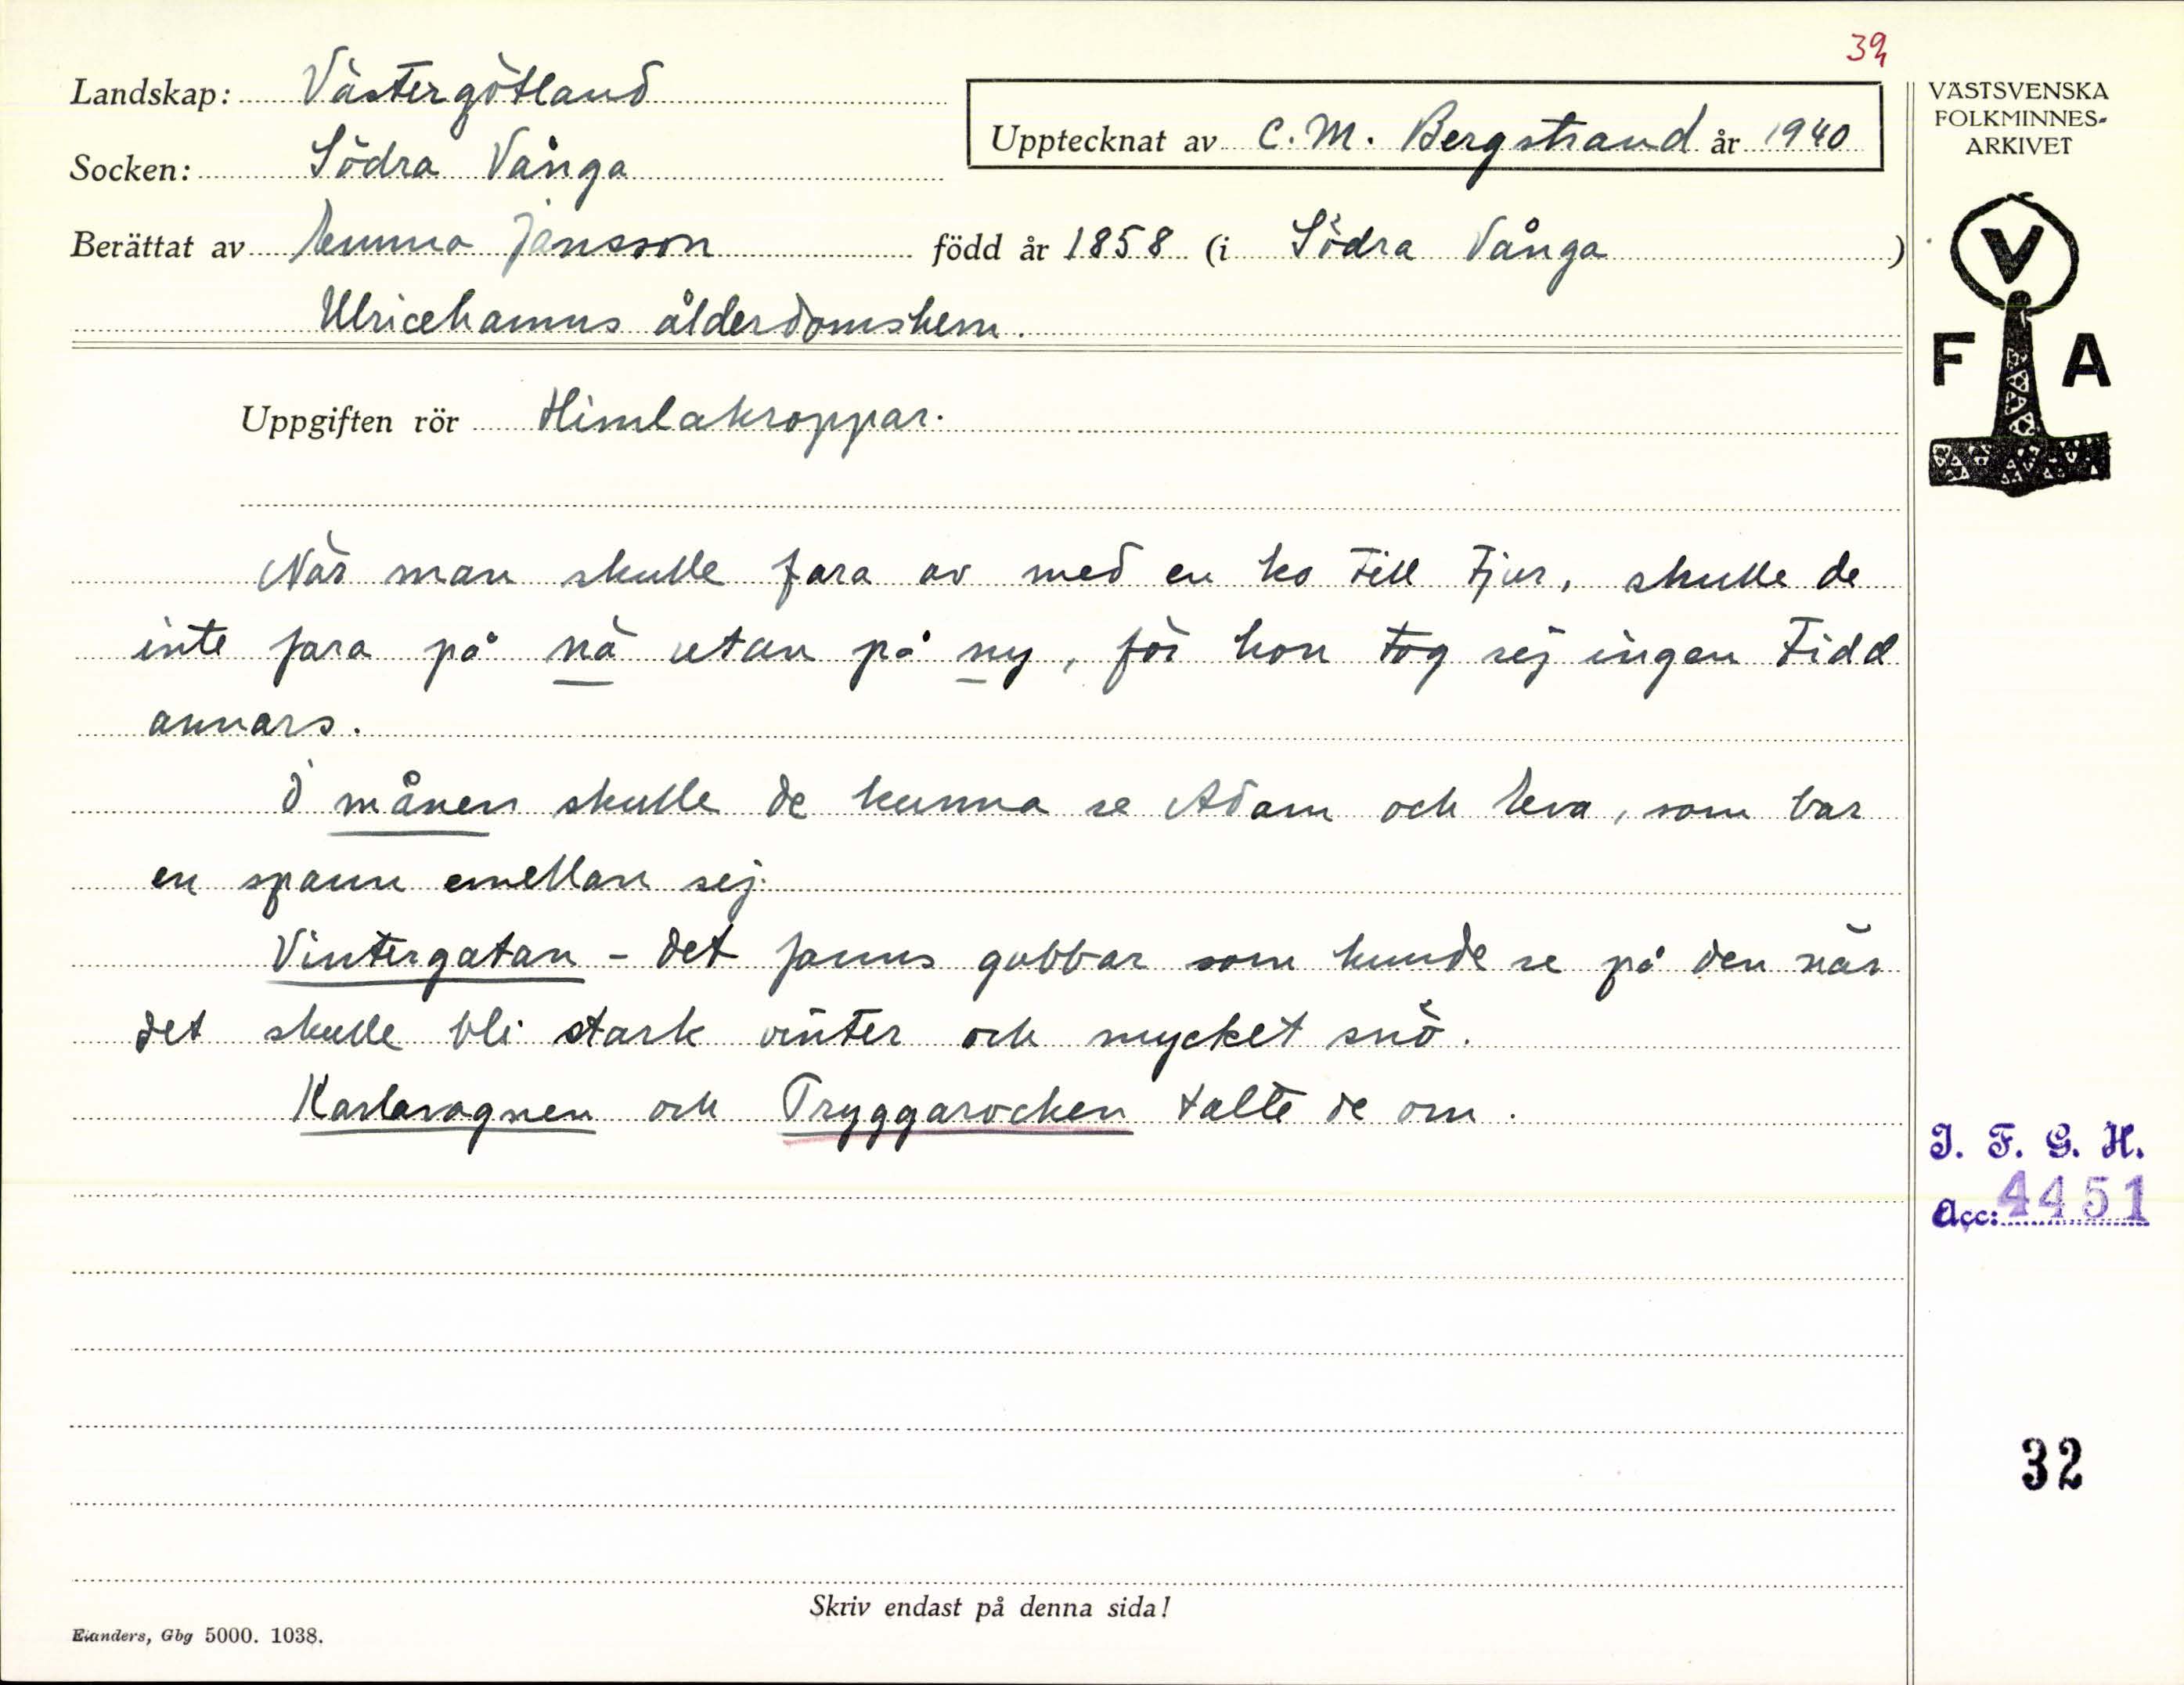 39
Landskap: Västergötland
Socken: Södra Vånga
Upptecknat av C. M. Bergstrand år 1940
Berättat av Emma Jansson född år 1858 (i Södra Vånga)
Ulricehamns ålderdomshem.
VÄSTSVENSKA
FOLKMINNES-
ARKIVET
V
F A
Uppgiften rör Himlakroppar.
När man skulle fara av med en ko till tjur, skulle de
inte fara på nä utan på ny, för hon tog sej ingen tidd
annars.
I månen skulle de kunna se Adam och Eva, som bar
en spann emellan sej.
Vintergatan - det fanns gubbar som kunde se på den när
det skulle bli stark vinter och mycket snö.
Karlavagnen och Fryggarocken talte de om.
I. F. G. H.
Acc: 4451
32
Skriv endast på denna sida!
Elanders, Gbg 5000. 1038.